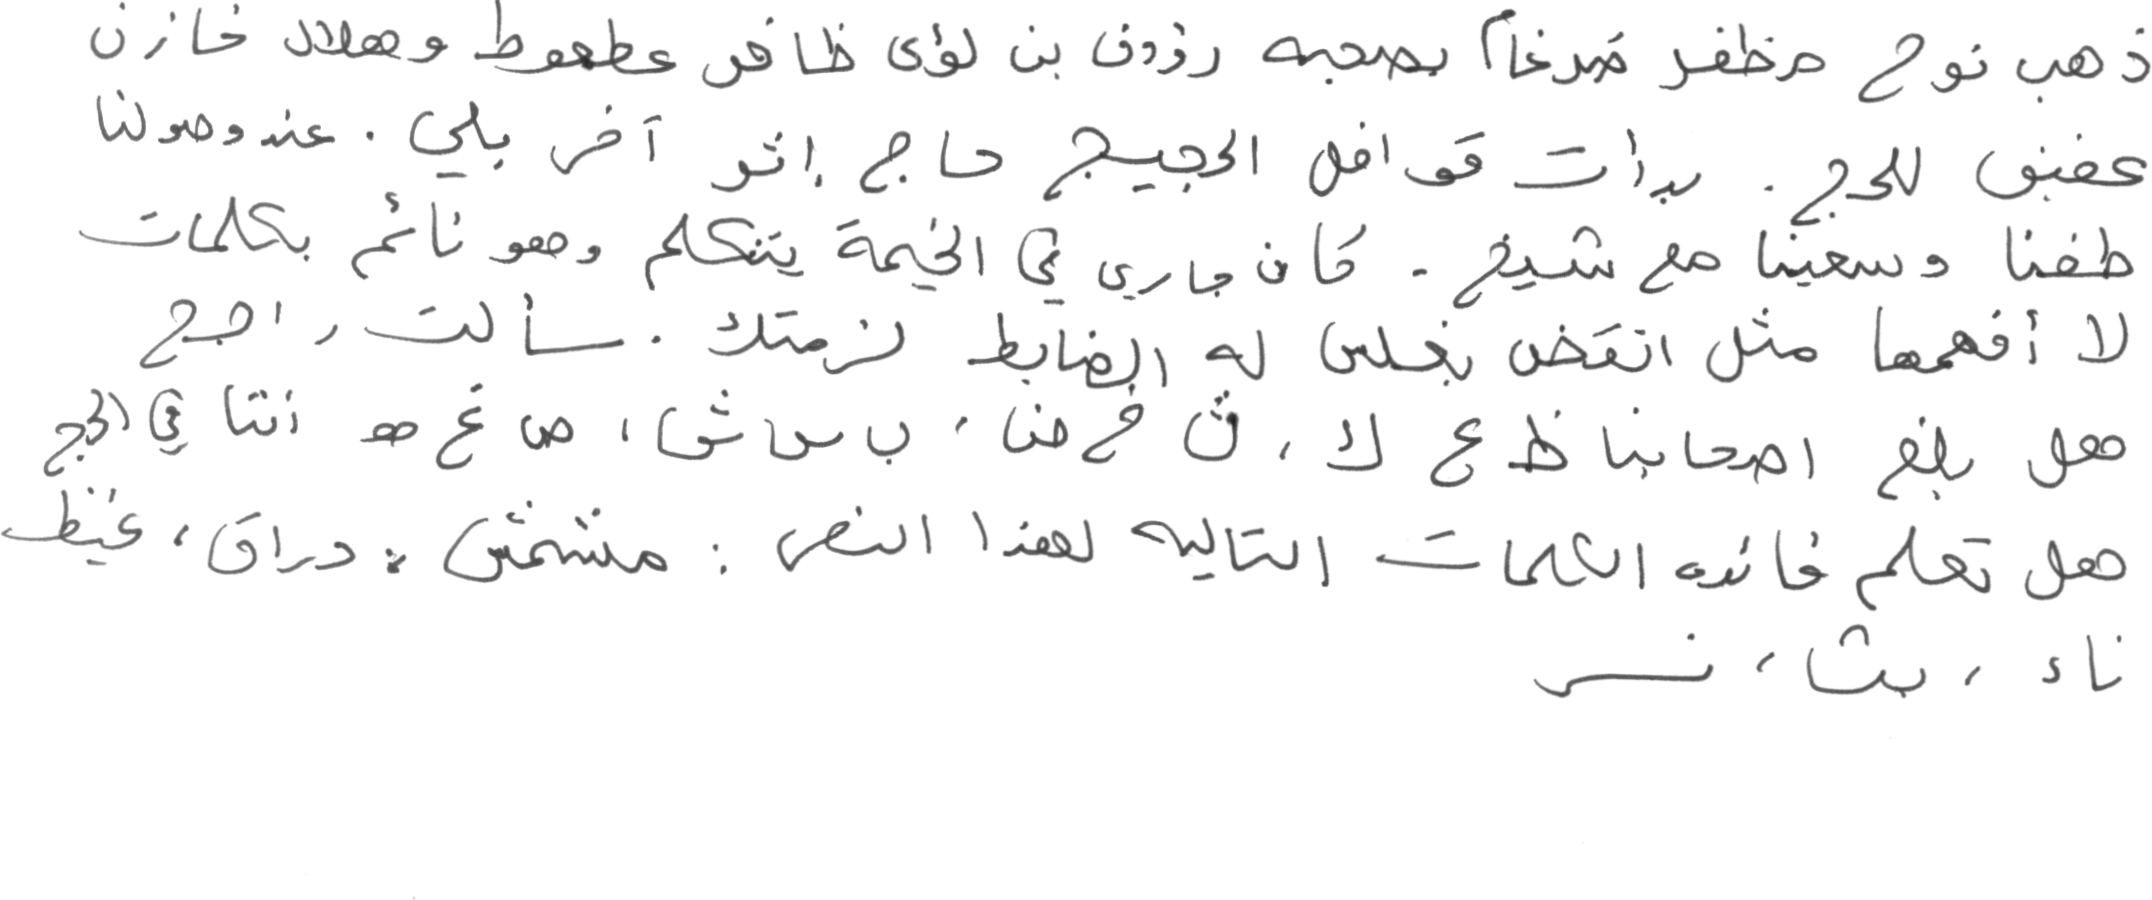 ذهب نوح مظفر ضرغام بصحبه رؤوف بن لؤى ظافر عطعوط وهلال خازن
عفيف للحج . بدأت قوافل الحجيج حاج إثر آخر يلبي . عند وصولنا
طفنا وسعينا مع شيخ . كان جاري في الخيمة يتكلم وهو نائم بكلمات
لا أفهمها مثل انقض بغلس له الضابط لزمتك . سألت راجح
هل بلغ اصحابنا ظ ع ك ، ث خ ض ، ب س ش ، ص غ ه اننا في الحج
هل تعلم فائده الكلمات التاليه لهذا النص : مشمش ، دراق ، غيظ
ناء ، بث ، نسر